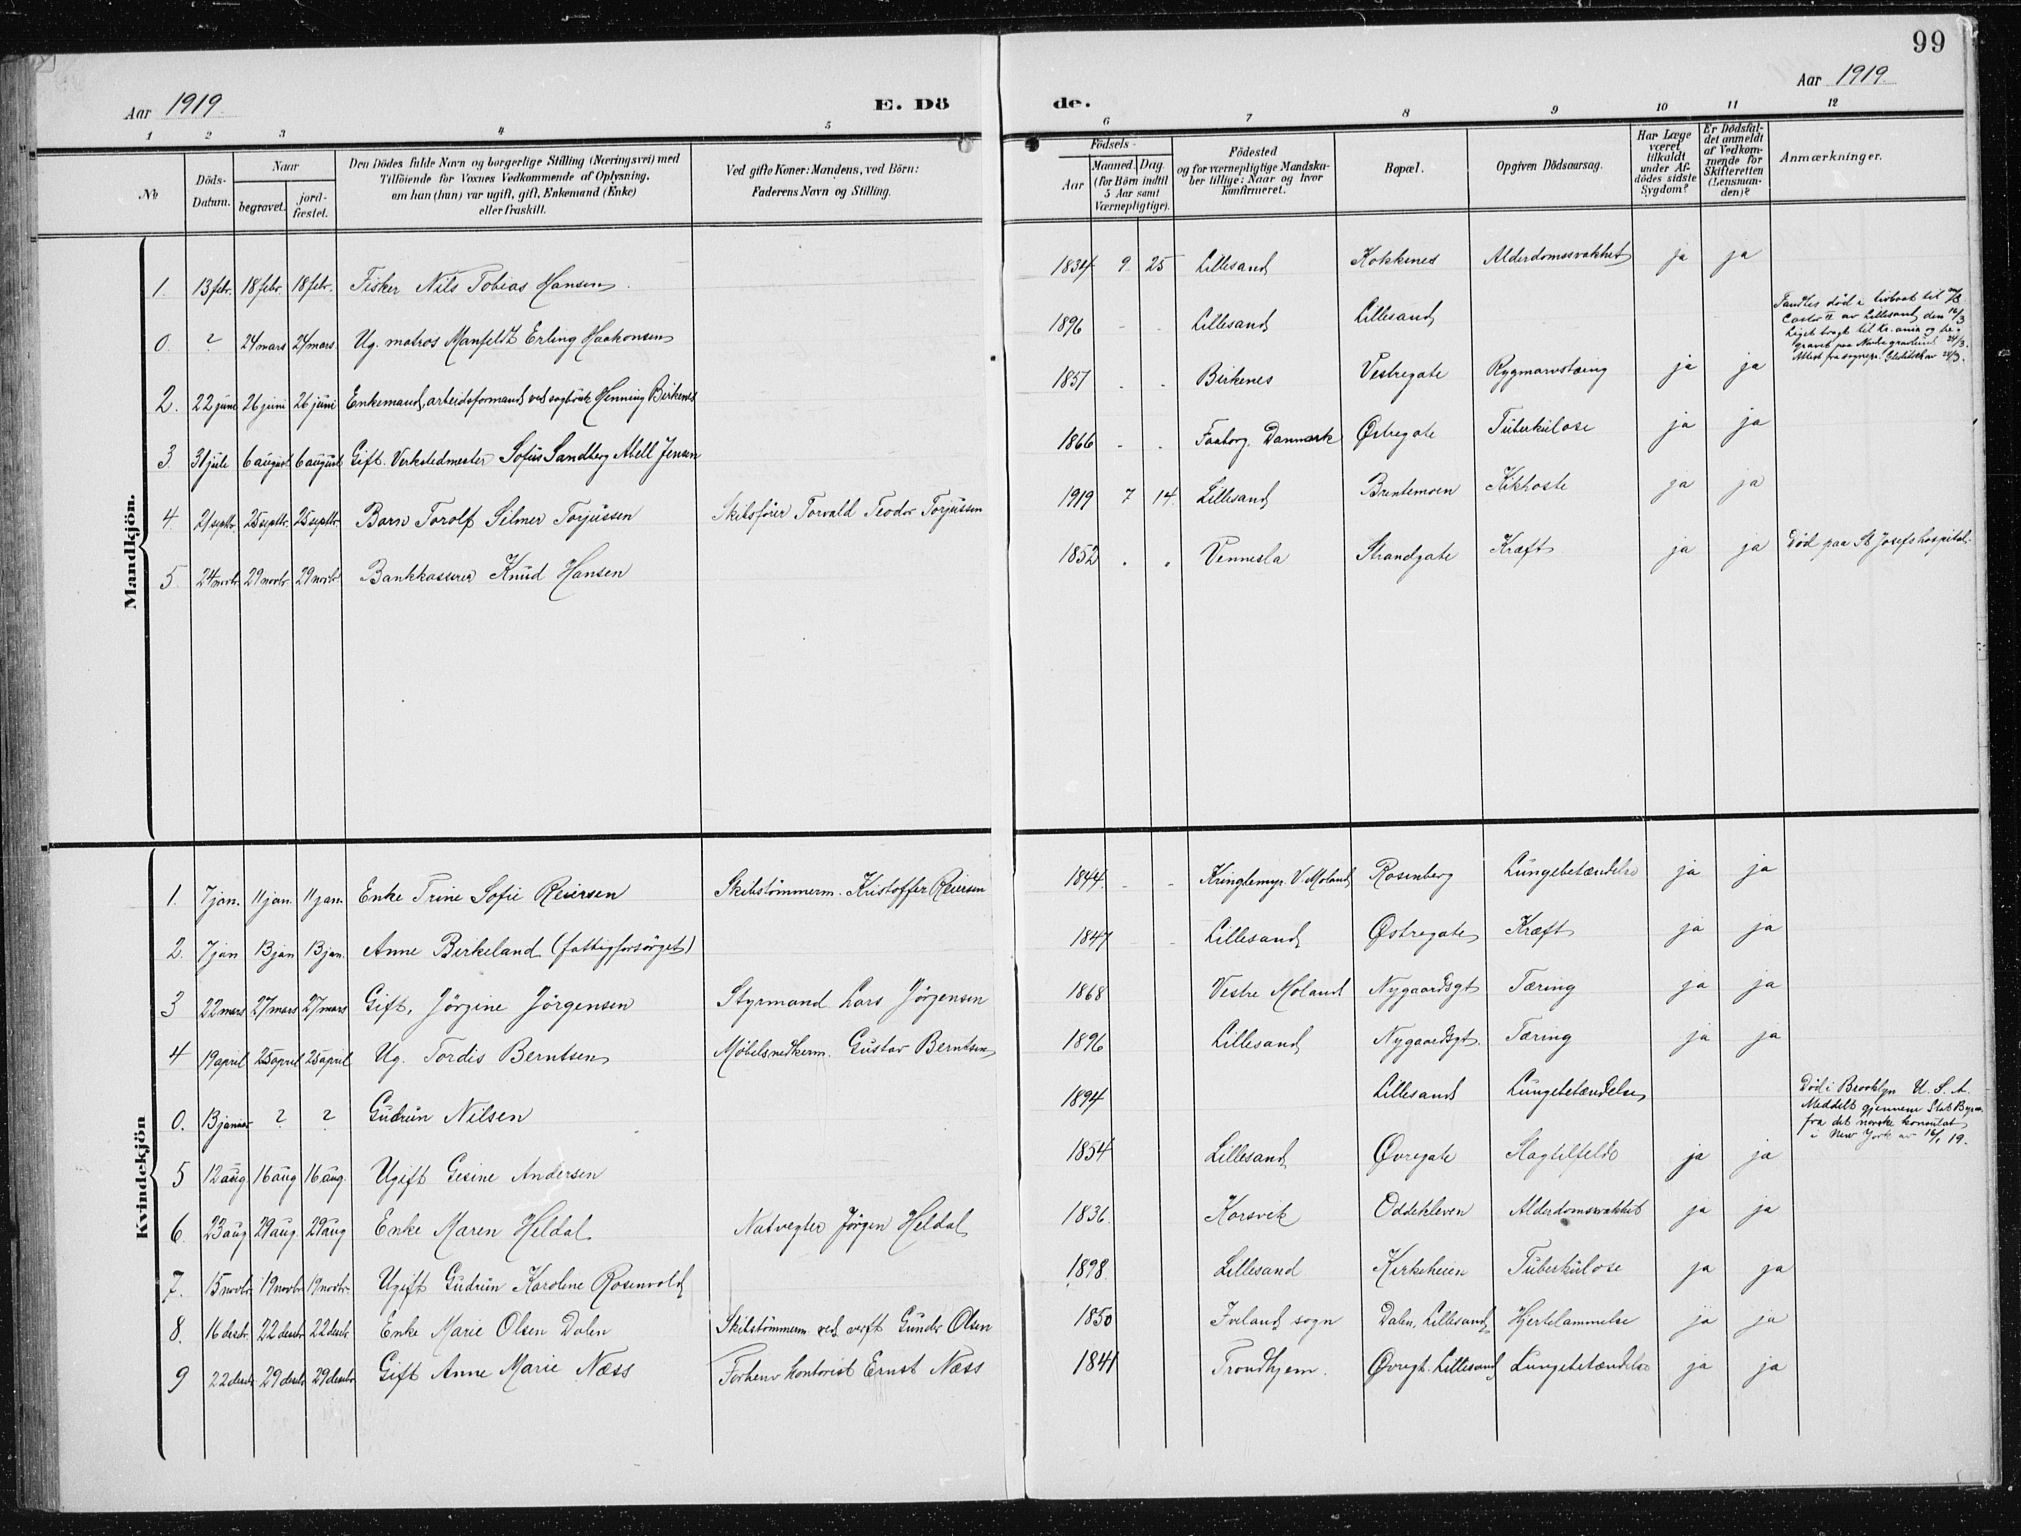 99
Aar 1919. E. Dö de. Aar 1919.
1 2 3 4 5 6 7 8 9 10 11 12
No
Döds-Datum.
Naar
begravet.
jord-fæstet.
Den Dödes fulde Navn og borgerlige Stilling (Næringsvei) med
Tilföiende for Voxnes Vedkommende af Oplysning,
om han (hun) var ugift, gift, Enkemand (Enke)
eller fraskilt.
Ved gifte Koner: Mandens, ved Börn:
Faderens Navn og Stilling.
Födsels-
Aar
Maaned. Dag.
(for Börn indtil
5 Aar samt
Værnepligtige).
Födested
og for værnepligtige Mandska-
ber tillige: Naar og hvor
konfirmeret.
Bopæl.
Opgiven Dödsaarsag.
Har Læge
været
tilkaldt
under Af-
dödes sidste
Sygdom?
Er Dödsfal-
det anmeldt
af Vedkom-
mende for
Skifteretten
(Lensman-
den)?
Anmærkninger.
Mandkjön.
1. 13 febr. 18 febr. 18 febr. Fisker Nils Tobias Hansen. 1834 9. 25 Lillesand Kokkenes Alderdomssvakhet ja ja
0. ? 24 mars 24 mars. Ug. matros Manfeldt Erling Haakonsen 1896 - - Lillesand Lillesand
Fandtes død i livbaat til m/s
Castor II av Lillesand den 16/3
Liget bragt til Kr.ania og be-
gravet paa Nordre gravlund 24/3.
2. 22 june 26 juni 26 juni Enkemand, arbeidsformand ved sagbruk Henning Birkenes 1851 . . Birkenes Vestregate Rygmarvstæring ja ja
3. 31 jule 6 august 6 august Gift. Verkstedmester Sofus Sandberg Abell Jensen 1866 . . Faaborg. Danmark Østregate Tuberkulose ja ja
4. 21 septbr. 25 septbr. 25 septbr. Barn Torolf Silmer Torjussen Skibsfører Torvald Teodor Torjussen 1919 7 14. Lillesand Brentemoen Kikhoste ja ja
5. 24 novbr 29 novbr. 29 novbr. Bankkasserer Knud Hansen 1852 . . Vennesla Strandgate Kræft ja ja Død paa St Josefs hospital.
Kvindekjön
1. 7 jan. 11 jan. 11 jan. Enke Trine Sofie Reiersen Skibstømmerm. Kristoffer Reiersen 1844. - - Kringlemyr. V. Moland Rosenberg Lungebetændelse ja ja
2. 7 jan 13 jan 13 jan. Anne Birkeland (fattigforsørget) 1847 - Lillesand Østregate Kræft ja ja
3 22 mars 27 mars 27 mars Gift, Jørgine Jørgensen Styrmand Lars Jørgensen 1868 Vestre Moland Nygaardsgt Tæring ja ja
4 19 april 25 april 25 april Ug. Tordis Berntsen Møbelsnedkerm. Gustav Berntsen 1896 Lillesand Nygaardsgt. Tæring ja ja
0. 13 januar ? ? Gudrun Nilsen 1894 Lillesand Lungebetændelse
Død i Brooklyn U. S. A.
Meddelt gjennem
fra det norske konsulat
i New York av 16/1 19.
5 12 aug 16 aug 16 aug. Ugift Gesine Andersen 1854 Lillesand Øvregate Slagtilfelde ja ja
6. 23 aug 29 aug 29 aug Enke Maren Heldal. Natvegter Jørgen Heldal 1836. Korsvik Oddekleven Alderdomssvakhet ja ja
7. 15 novbr 19 novbr 19 novbr. Ugift Gudrun Karoline Rosenvold 1898. Lillesand Kirkeheien Tuberkulose ja ja
8. 16 desbr. 22 desbr 22 desbr. Enke Marie Olsen Dalen Skibstømmerm ved verft Gunder Olsen 1850 Iveland sogn Dalen, Lillesand Hjertelammelse ja ja
9 22 desbr 29 desbr 29 desbr Gift Anne Marie Næss Forhenv kontorist Ernst Næss 1841 Trondhjem. Øvregt. Lillesand Lungebetændelse ja ja